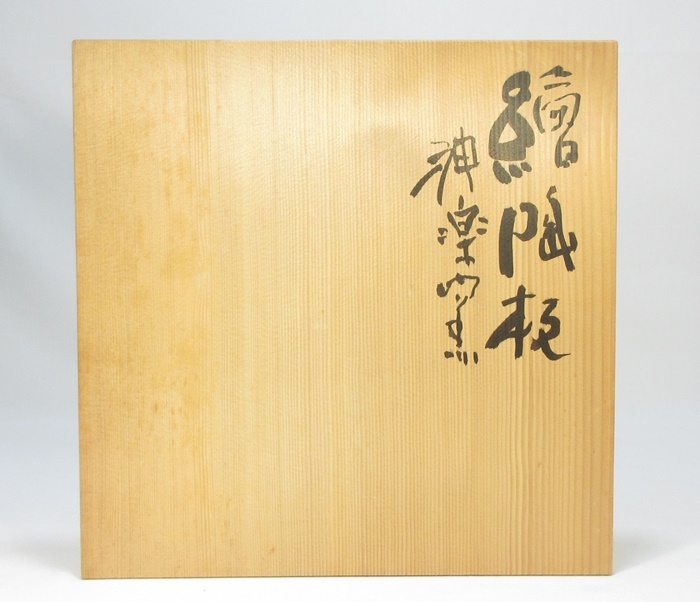 繪陶板
神楽窯